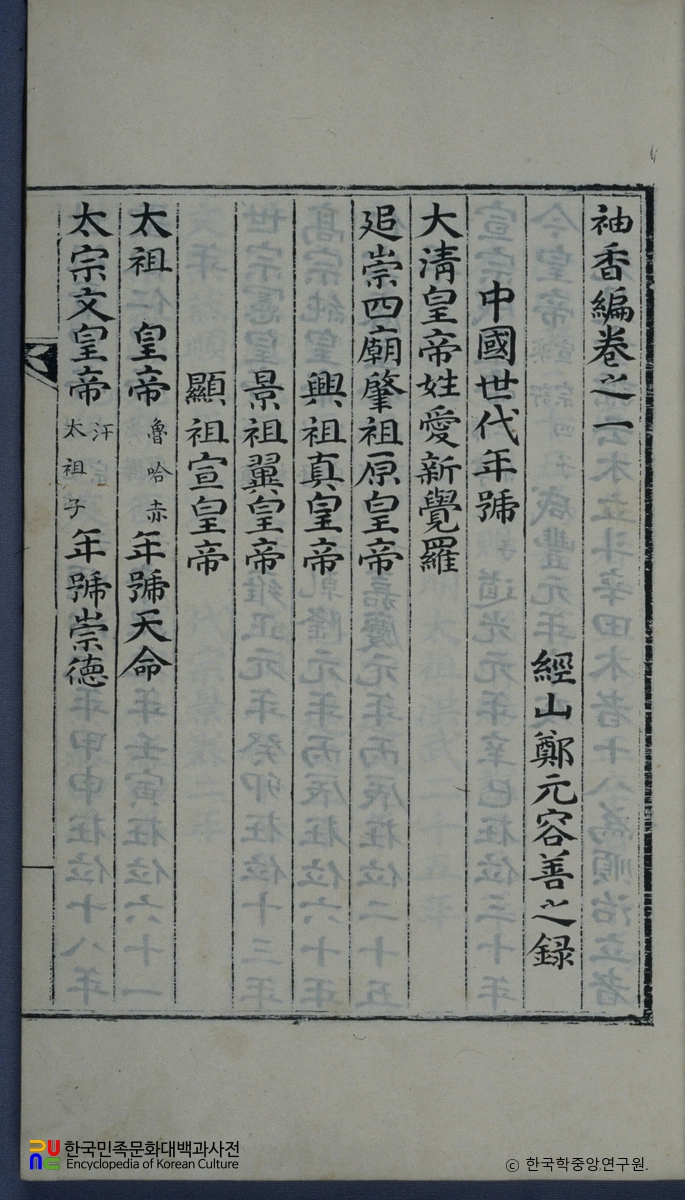 袖香編卷之一
經山鄭元容善之録
中國世代年號
大清皇帝姓愛新覺羅
追崇四廟肇祖原皇帝
興祖真皇帝
景祖翼皇帝
顯祖宣皇帝
太祖 皇帝 魯哈赤 年號天命
太宗文皇帝 汗 太祖子 年號崇德
한국민족문화대백과사전
Encyclopedia of Korean Culture
ⓒ 한국학중앙연구원.